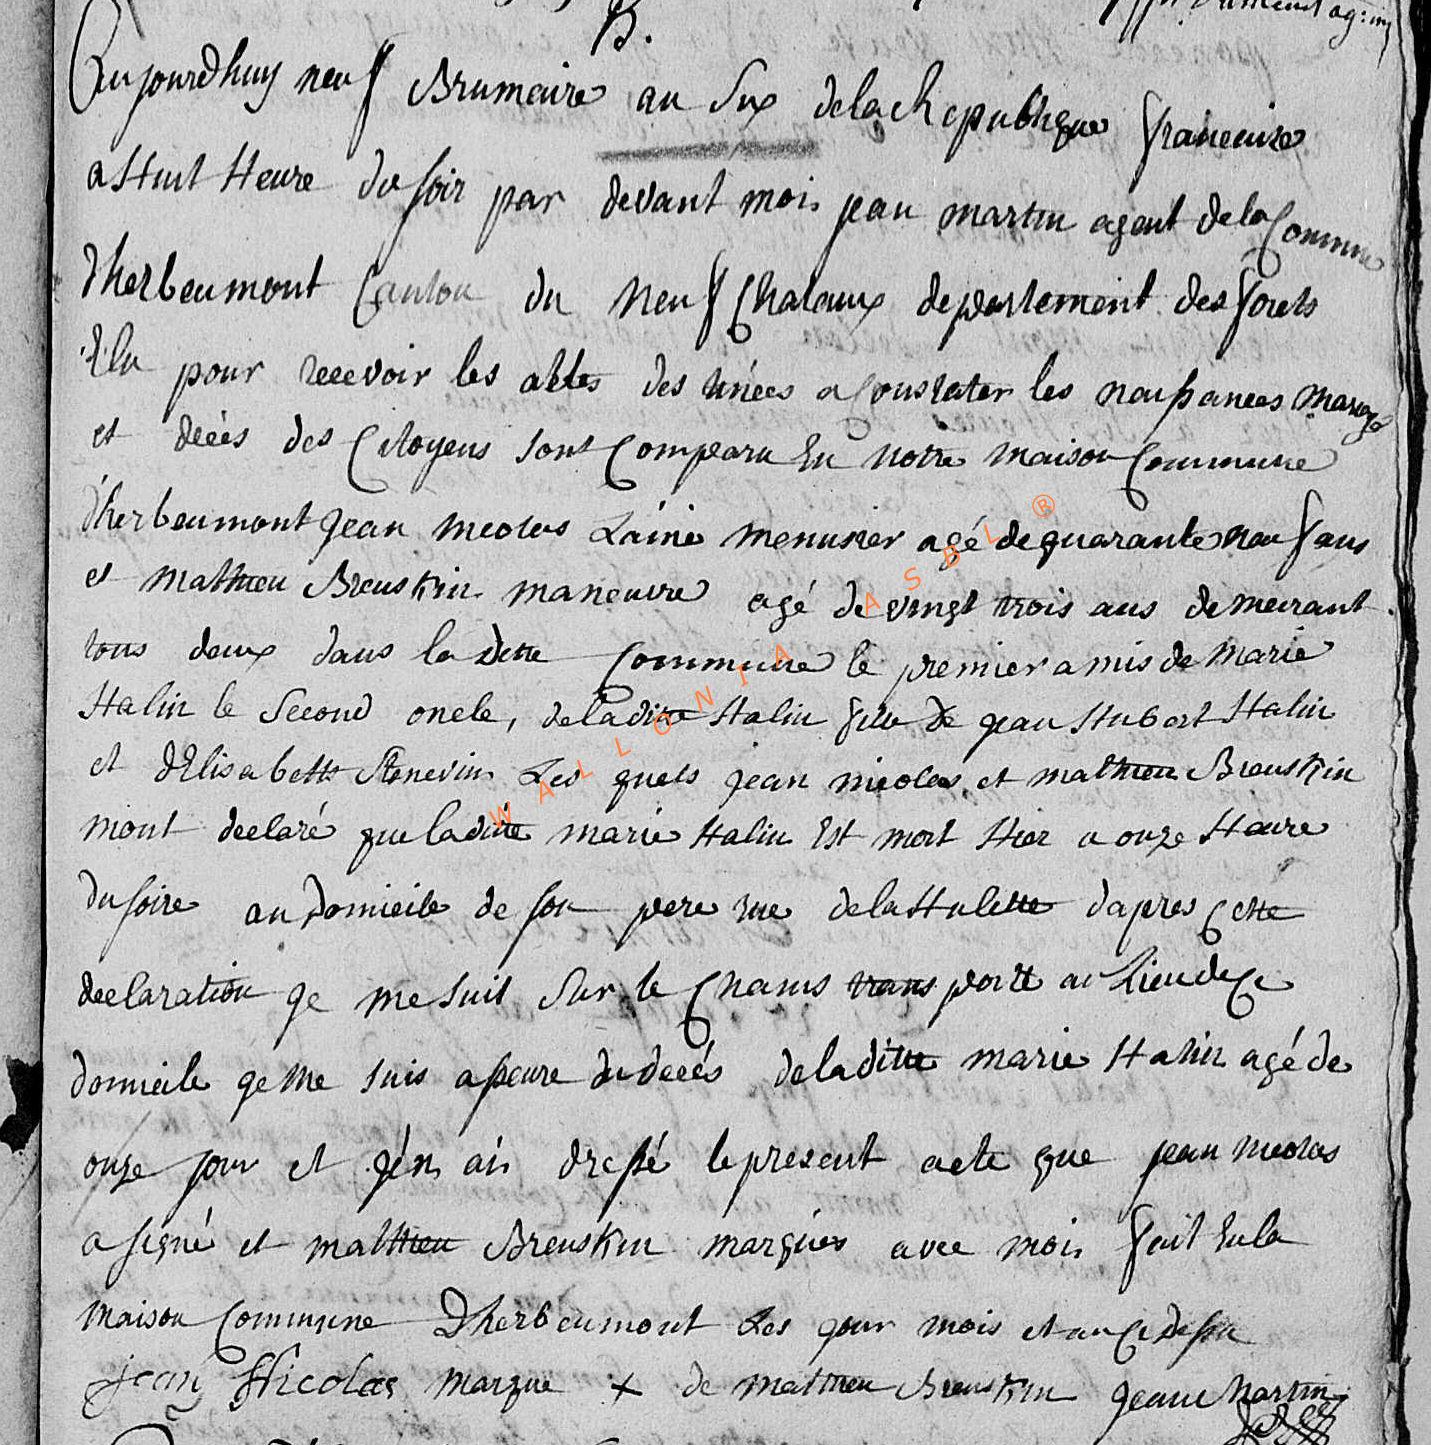 B.
Aujourdhuy neuf Brumaire an Six dela Republique francaise
a Huit Heure du soir par devant mois jean martin agent de la Commune
dherbeumont Canton du Neufchataux departement des forets
Elu pour recevoir les actes des tinées a Constater les naissances mariage
et decés des Citoyens sont Comparu En notre maison Commune
dherbeumont jean nicolas Lainé menusier agé de quarante neuf ans
et mathieu Breuskin maneuvre agé de vingt trois ans demeurant
tous deux dans la ditte Commune le premier amis de Marie
Halin le Second oncle, de la dite Halin fille de jean Hubert Halin
et dElisabette Stenevin Les quels jean nicolas et mathieu Breuskin
mont declaré que la dite marie Halin Est mort Hier a onze Heure
du soire au Domicile de son pere rue de la Hulette dapres Cette
declaration ge me suit Sur le Chams transporté au Lieu de Ce
domicile ge me suis assure du decés de la ditte marie Halin agé de
onze jour et gén ais dressé le present acte que jean nicolas
a signé et mathieu Breuskin marqués avec mois fait En la
maison Commune Dherbeumont Les gour mois et an Ci dessu
jean Nicolas marque + de mathieu Breuskin jean Martin
WALLONIA ASBL ®